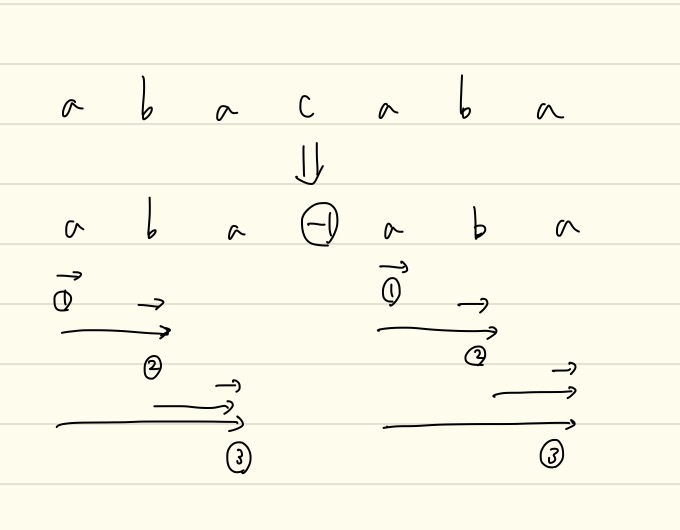 a b a c a b a
⇓
a b a -1 a b a
① ①
② ②
③ ③